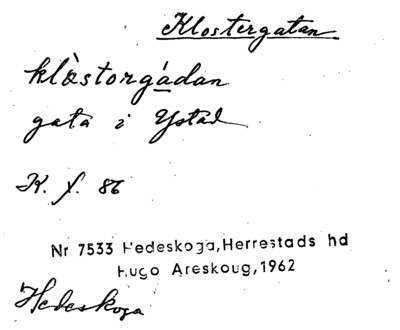 Klostergatan
klåstorgådan
gata i Ystad
K. f. 86
Nr 7533 Hedeskoga, Herrestads hd
Hugo Areskoug, 1962
Hedeskoga